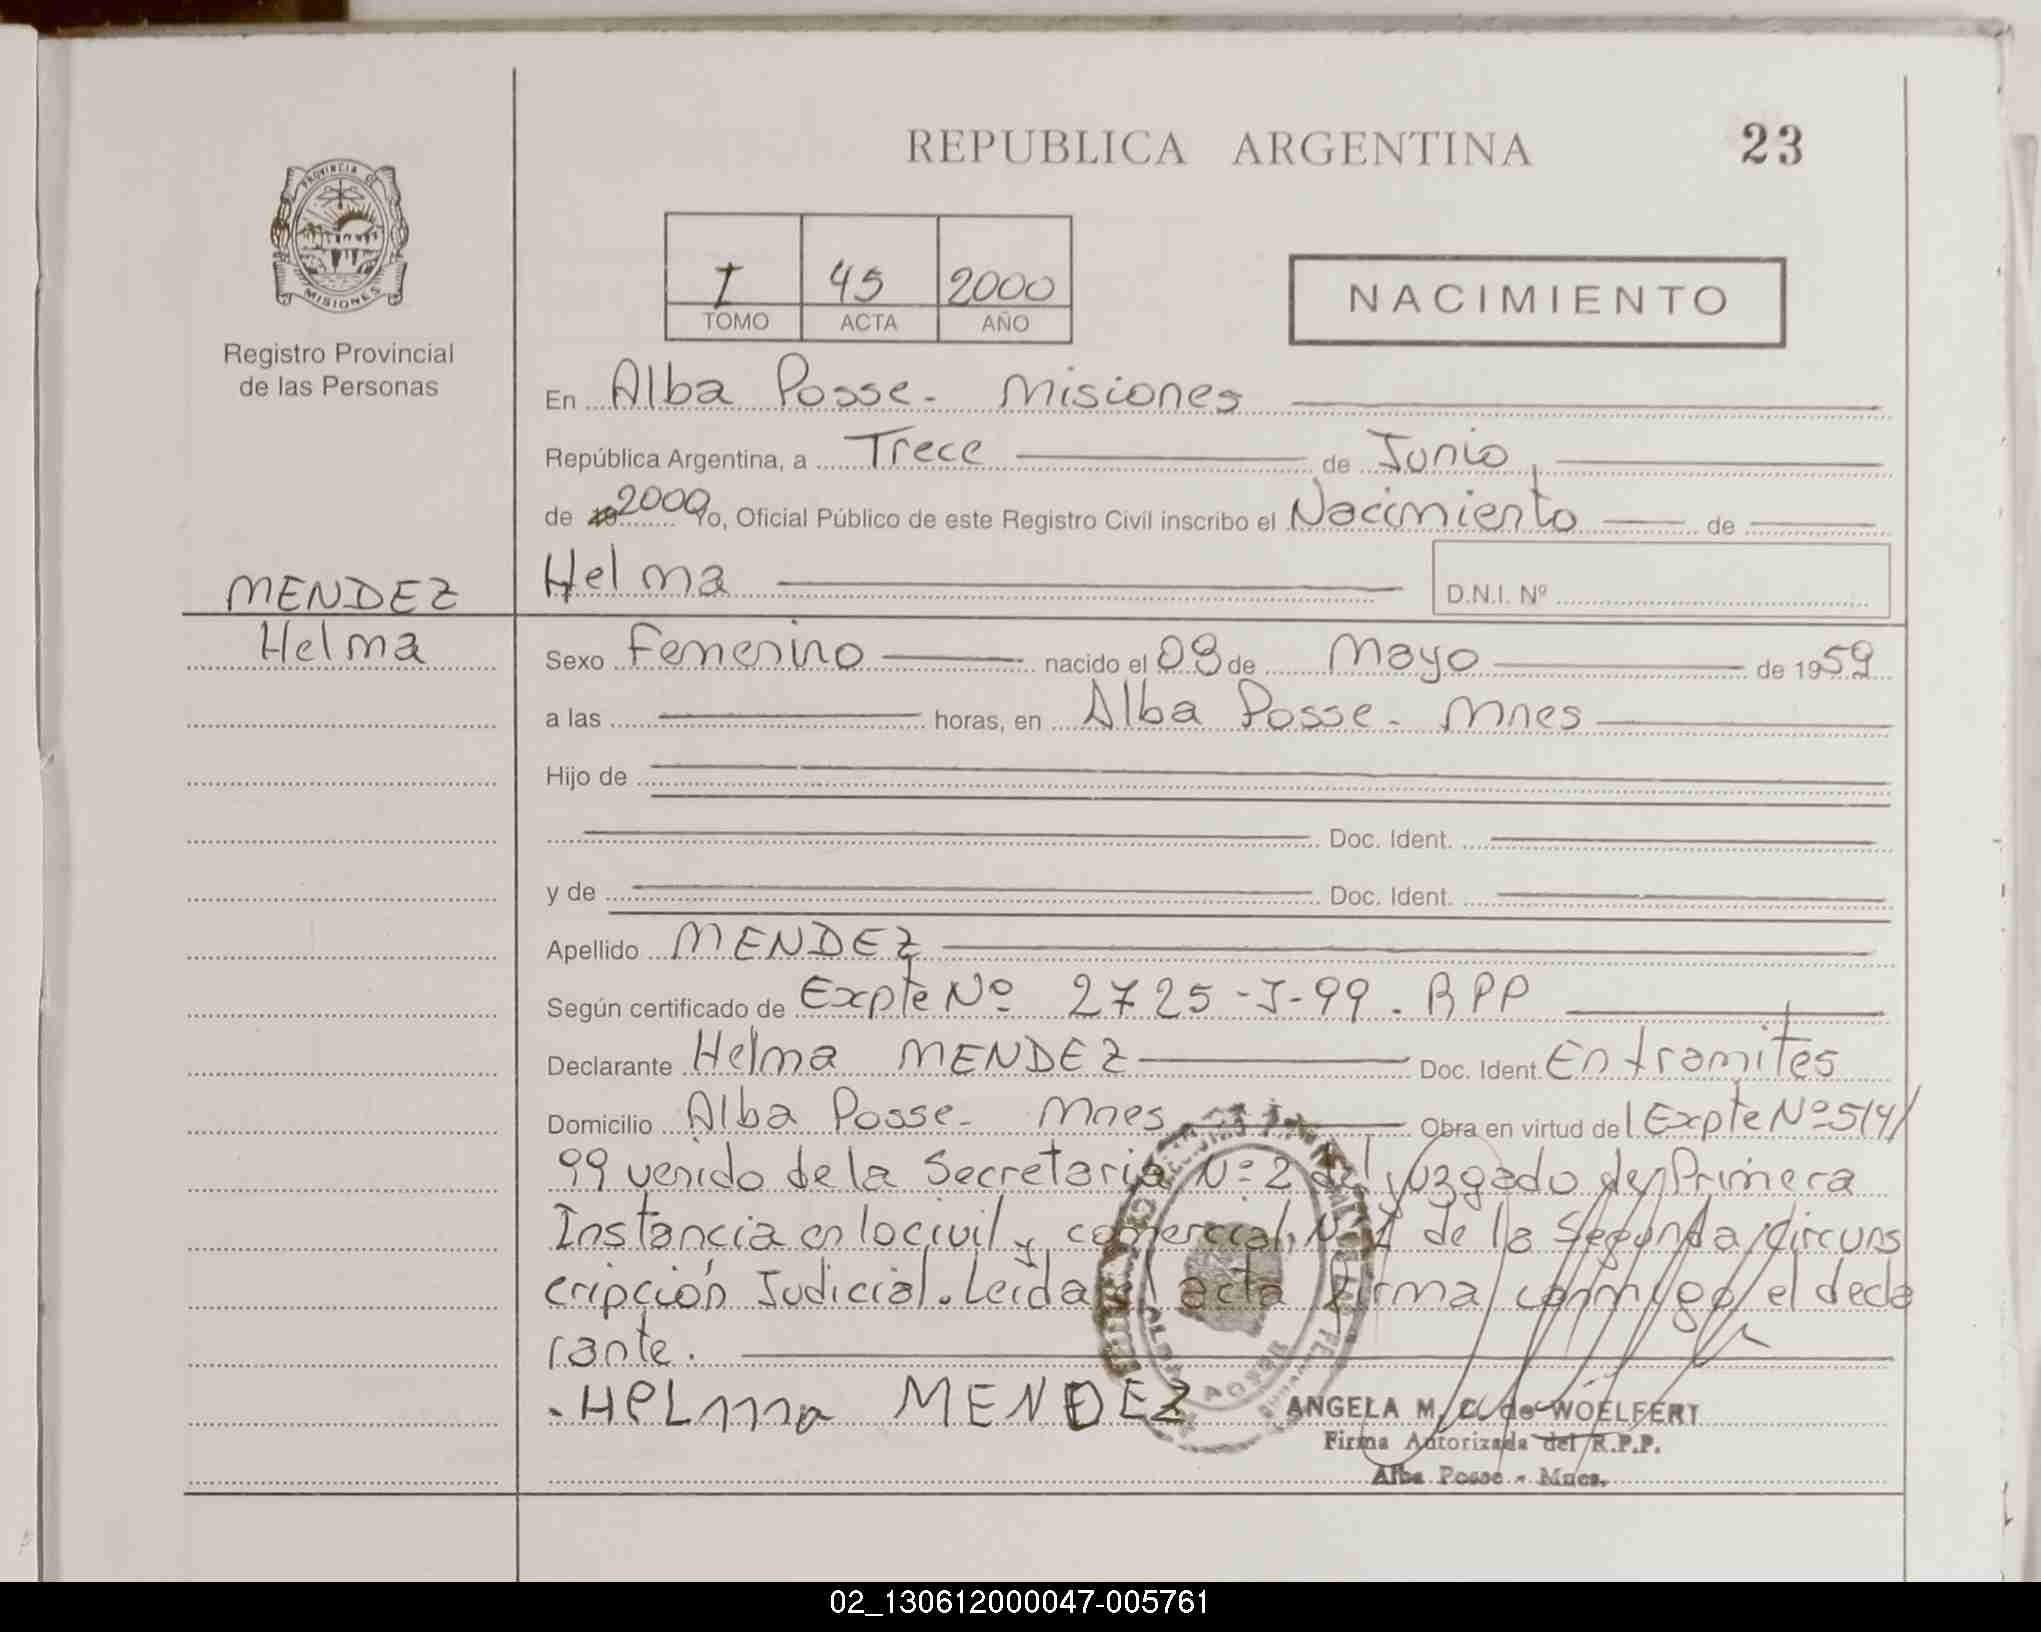 REPUBLICA ARGENTINA 23
PROVINCIA DE
MISIONES
Registro Provincial
de las Personas
I 45 2000
TOMO ACTA AÑO
NACIMIENTO
En Alba Posse - Misiones
República Argentina, a Trece de Junio
de 19 2000 Yo, Oficial Público de este Registro Civil inscribo el Nacimiento de
MENDEZ Helma D.N.I. Nº
Helma Sexo Femenino nacido el 08 de Mayo de 1959
a las horas, en Alba Posse - Mnes
Hijo de
Doc. Ident.
y de Doc. Ident.
Apellido MENDEZ
Según certificado de Expte Nº 2725-J-99. RPP
Declarante Helma MENDEZ Doc. Ident. En tramites
Domicilio Alba Posse - Mnes Obra en virtud del Expte Nº 514/
99 venido de la Secretaria Nº 2 del juzgado de Primera
Instancia en lo civil y comercial Nº 1 de la Segunda circuns
cripción Judicial. Leida el acta firma conmigo el decla
rante.
. HELma MENDEZ
ANGELA M. C. de WOELFERT
Firma Autorizada del R.P.P.
Alba Posse - Mnes.
02_130612000047-005761